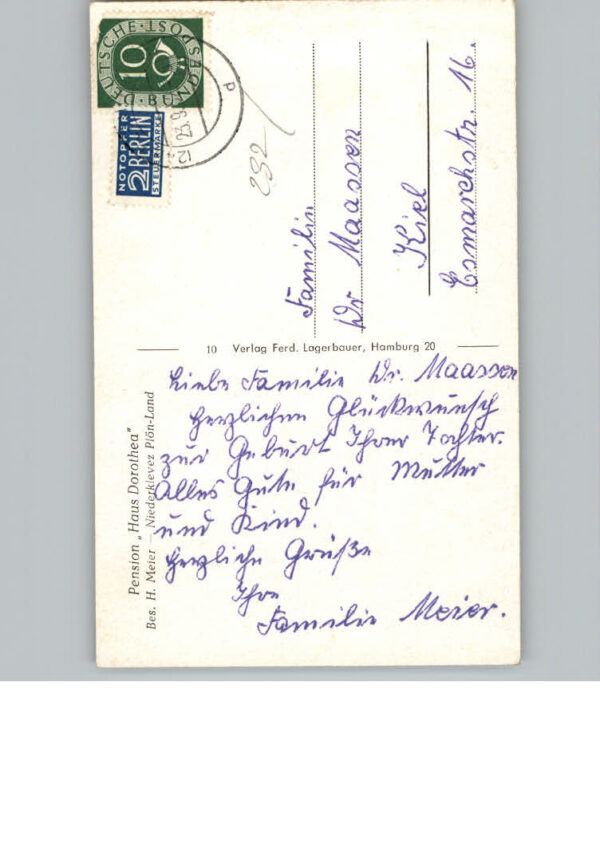 DEUTSCHE · BUNDESPOST
10
NOTOPFER
2 BERLIN
STEUERMARKE
232
Familie
Dr Maassen
Kiel
Esmarchstr. 16.
10 Verlag Ferd. Lagerbauer, Hamburg 20
Pension „Haus Dorothea"
Bes. H. Meier – Niederkleveez Plön-Land
Liebe Familie Dr. Maassen
Herzlichen Glückwunsch
zur Geburt Ihrer Tochter.
Alles Gute für Mutter
und Kind.
Herzliche Grüße
Ihre
Familie Meier.